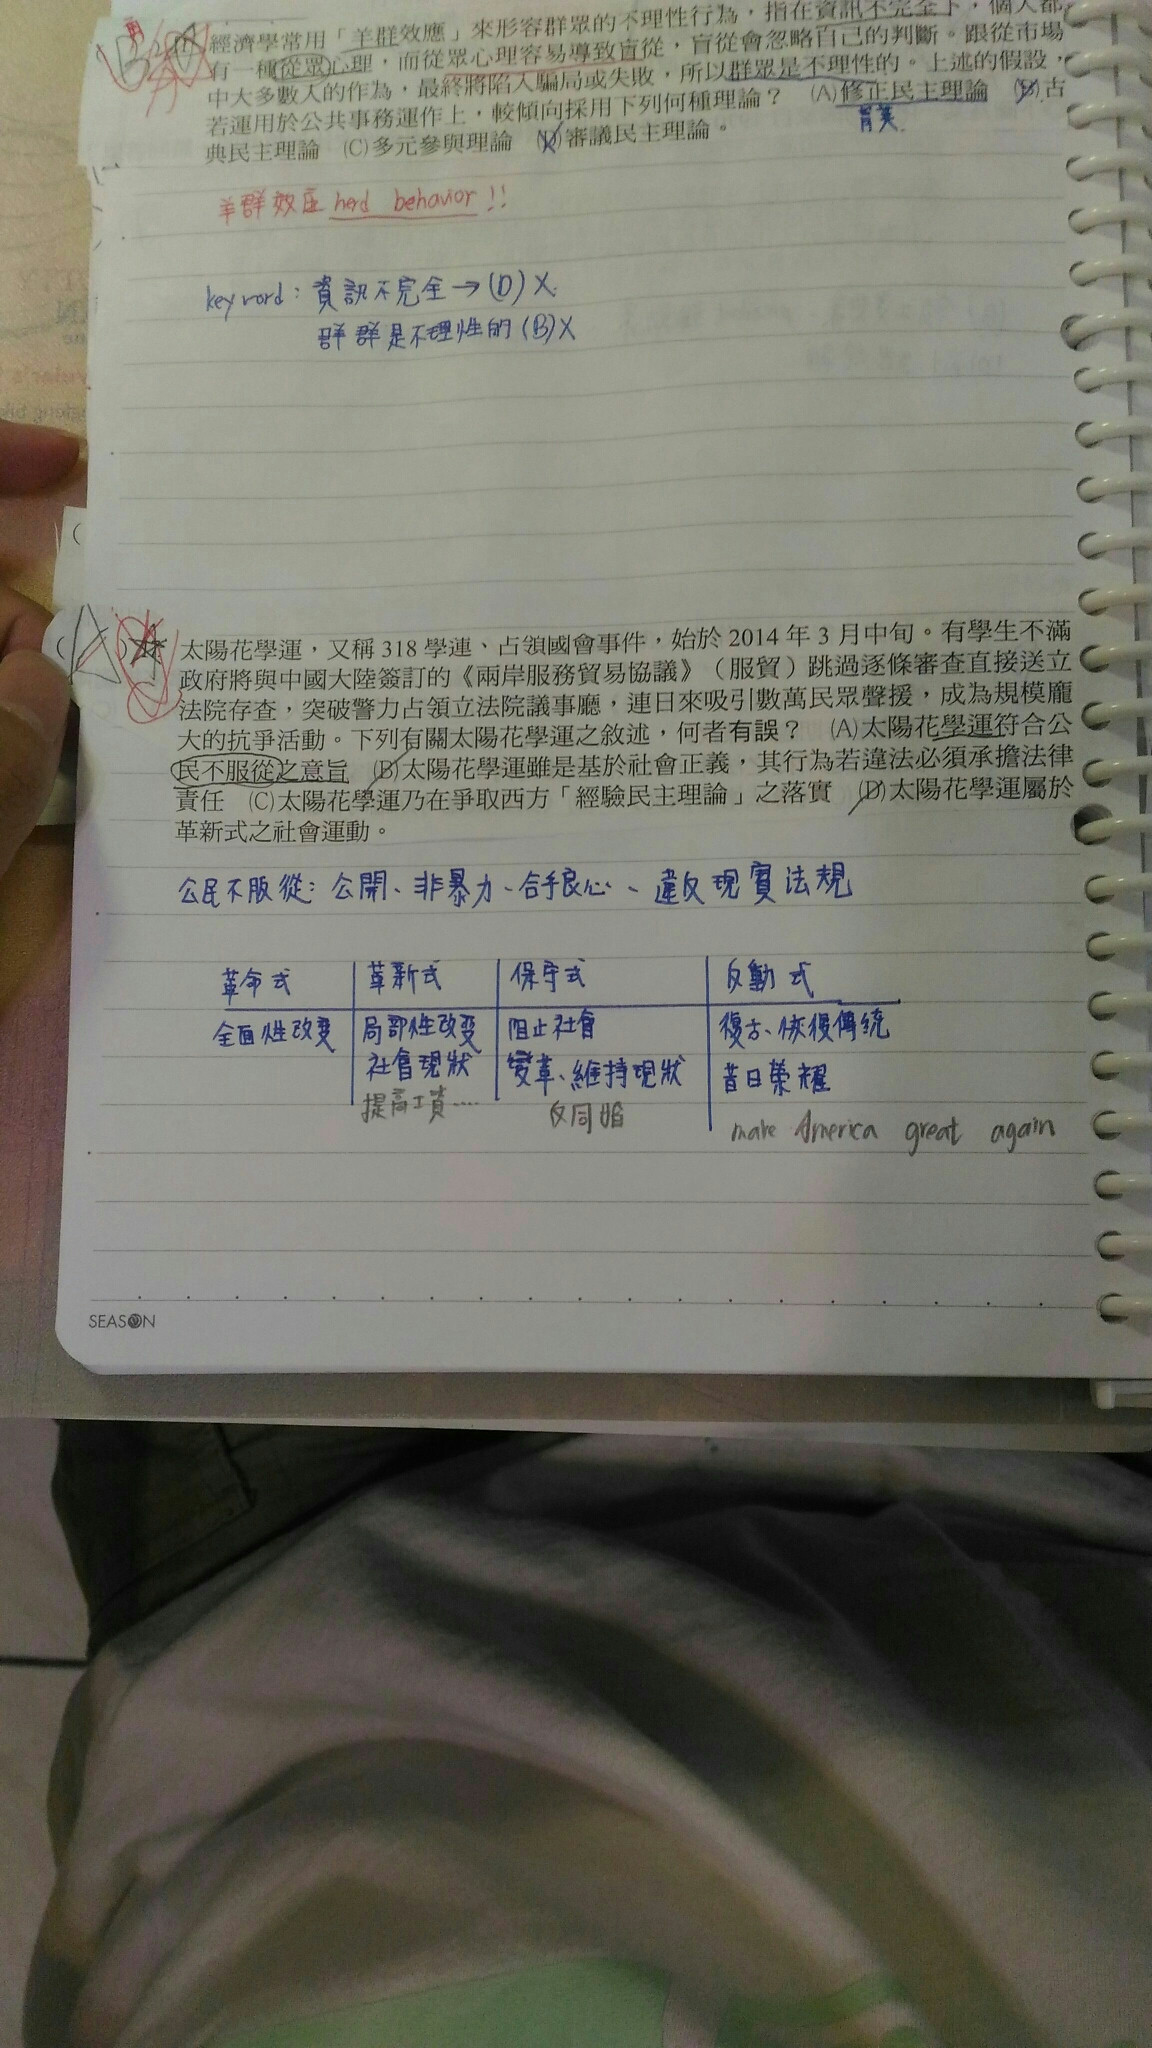 經濟學常用「羊群效應」來形容群眾的不理性行為，指在資訊不完全下，個人都
有一種從眾心理，而從眾心理容易導致盲從，盲從會忽略自己的判斷。跟從市場
中大多數人的作為，最終將陷入騙局或失敗，所以群眾是不理性的。上述的假設，
若運用於公共事務運作上，較傾向採用下列何種理論？ (A)修正民主理論 (B)古
菁英
典民主理論 (C)多元參與理論 (D)審議民主理論。
羊群效应 herd behavior !!
keyword：資訊不完全→(D)X
群群是不理性的(B)X
太陽花學運，又稱 318 學運、占領國會事件，始於 2014 年 3 月中旬。有學生不滿
政府將與中國大陸簽訂的《兩岸服務貿易協議》（服貿）跳過逐條審查直接送立
法院存查，突破警力占領立法院議事廳，連日來吸引數萬民眾聲援，成為規模龐
大的抗爭活動。下列有關太陽花學運之敘述，何者有誤？ (A)太陽花學運符合公
民不服從之意旨 (B)太陽花學運雖是基於社會正義，其行為若違法必須承擔法律
責任 (C)太陽花學運乃在爭取西方「經驗民主理論」之落實 (D)太陽花學運屬於
革新式之社會運動。
公民不服從：公開、非暴力、合乎良心、違反現實法規
革命式 革新式 保守式 反動式
全面性改變 局部性改變 阻止社會 復古、恢復傳統
社會現狀 變革、維持現狀 昔日榮耀
提高工資…. 反同婚 make America great again
SEASON